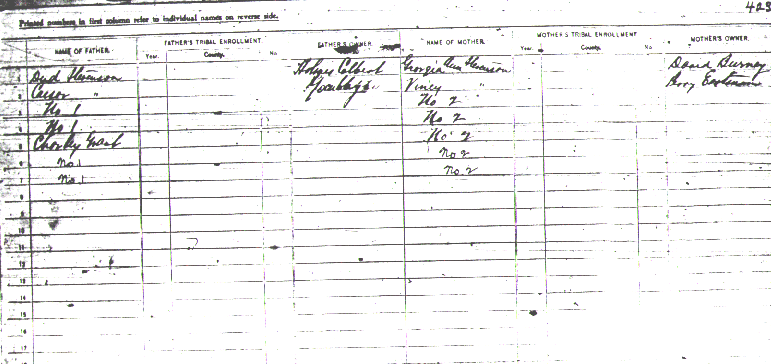 423
Printed numbers in first column refer to individual names on reverse side.
NAME OF FATHER. FATHER'S TRIBAL ENROLLMENT. FATHER'S OWNER. NAME OF MOTHER. MOTHER'S TRIBAL ENROLLMENT. MOTHER'S OWNER.
Year. County. No Year. County. No
Dud Stevenson Holmes Colbert Georgia Ann Stevenson David Burney
2 Cesar " Viney " Eastman
No 1 No 2
No 1 No 2
Grant No 2
6 no. 1 no 2
7 no. 1 no. 2
8
9
10
11
12
13
14
15
16
17